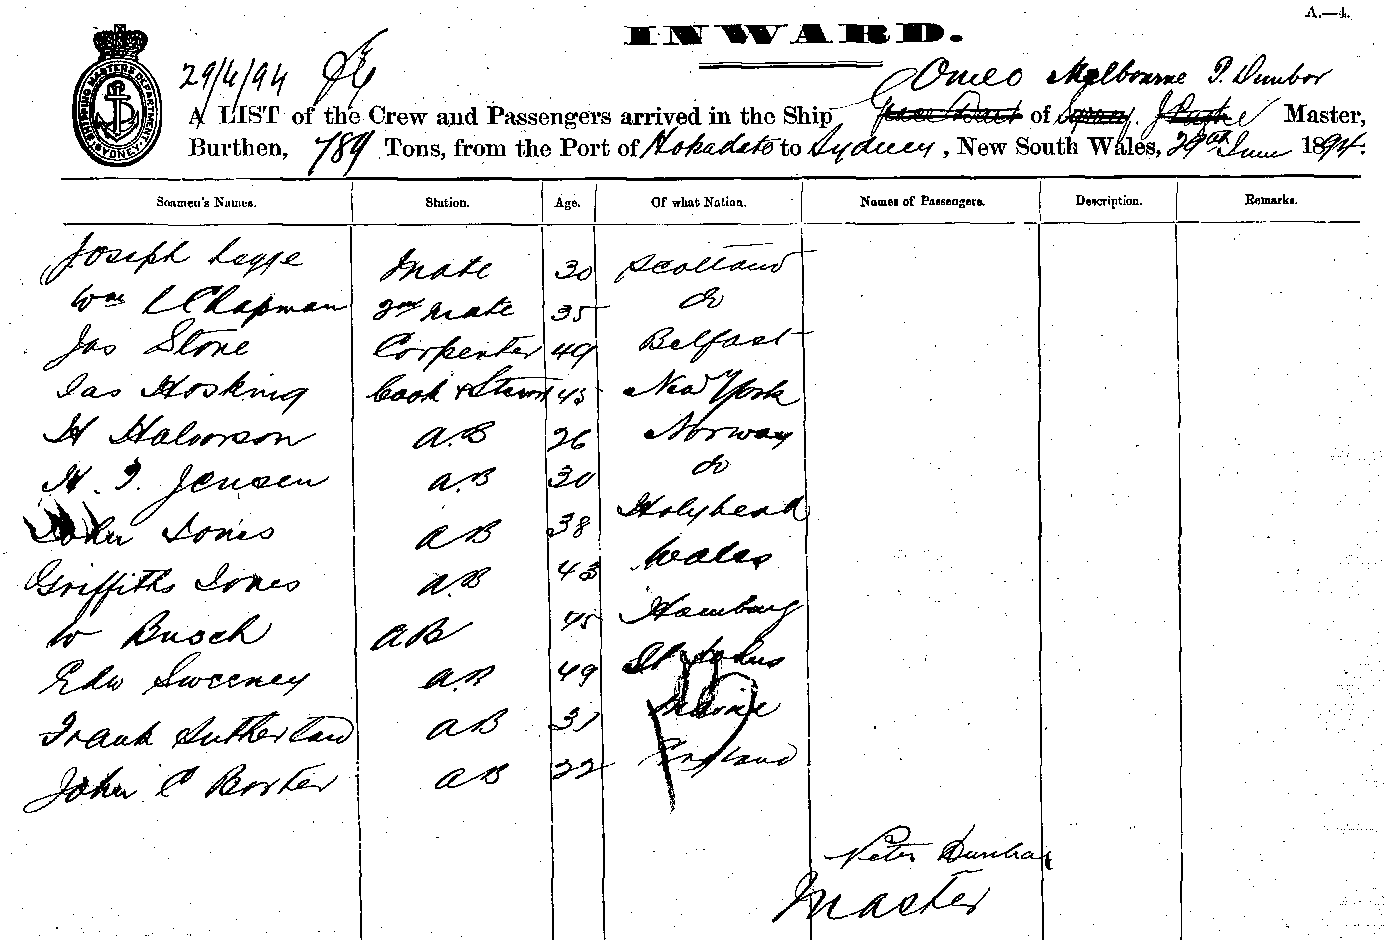 A.—4.
INWARD.
29/4/94
SHIPPING MASTERS DEPARTMENT SYDNEY
Omeo Melbourne P. Dunbar
A LIST of the Crew and Passengers arrived in the Ship of Master,
Burthen, 789 Tons, from the Port of Hokadate to Sydney, New South Wales, 29th June 1894.
Seamen's Names. Station. Age. Of what Nation. Names of Passengers. Description. Remarks.
Joseph Legge Mate 30 Scotland
Wm L Chapman 2nd Mate 35 do
Jas Stone Carpenter 49 Belfast
Jas Hosking Cook & Stewd 45 New York
H Halvorson A.B 26 Norway
H. J. Jensen A.B 30 do
John Jones AB 38 Holyhead
Griffiths Jones A.B 43 Wales
W Busch AB 45 Hamburg
Edw Sweeney A.B 49 St Johns
Frank Sutherland AB 31 Maine
John C Porter AB 22 England
Peter Dunbar
Master